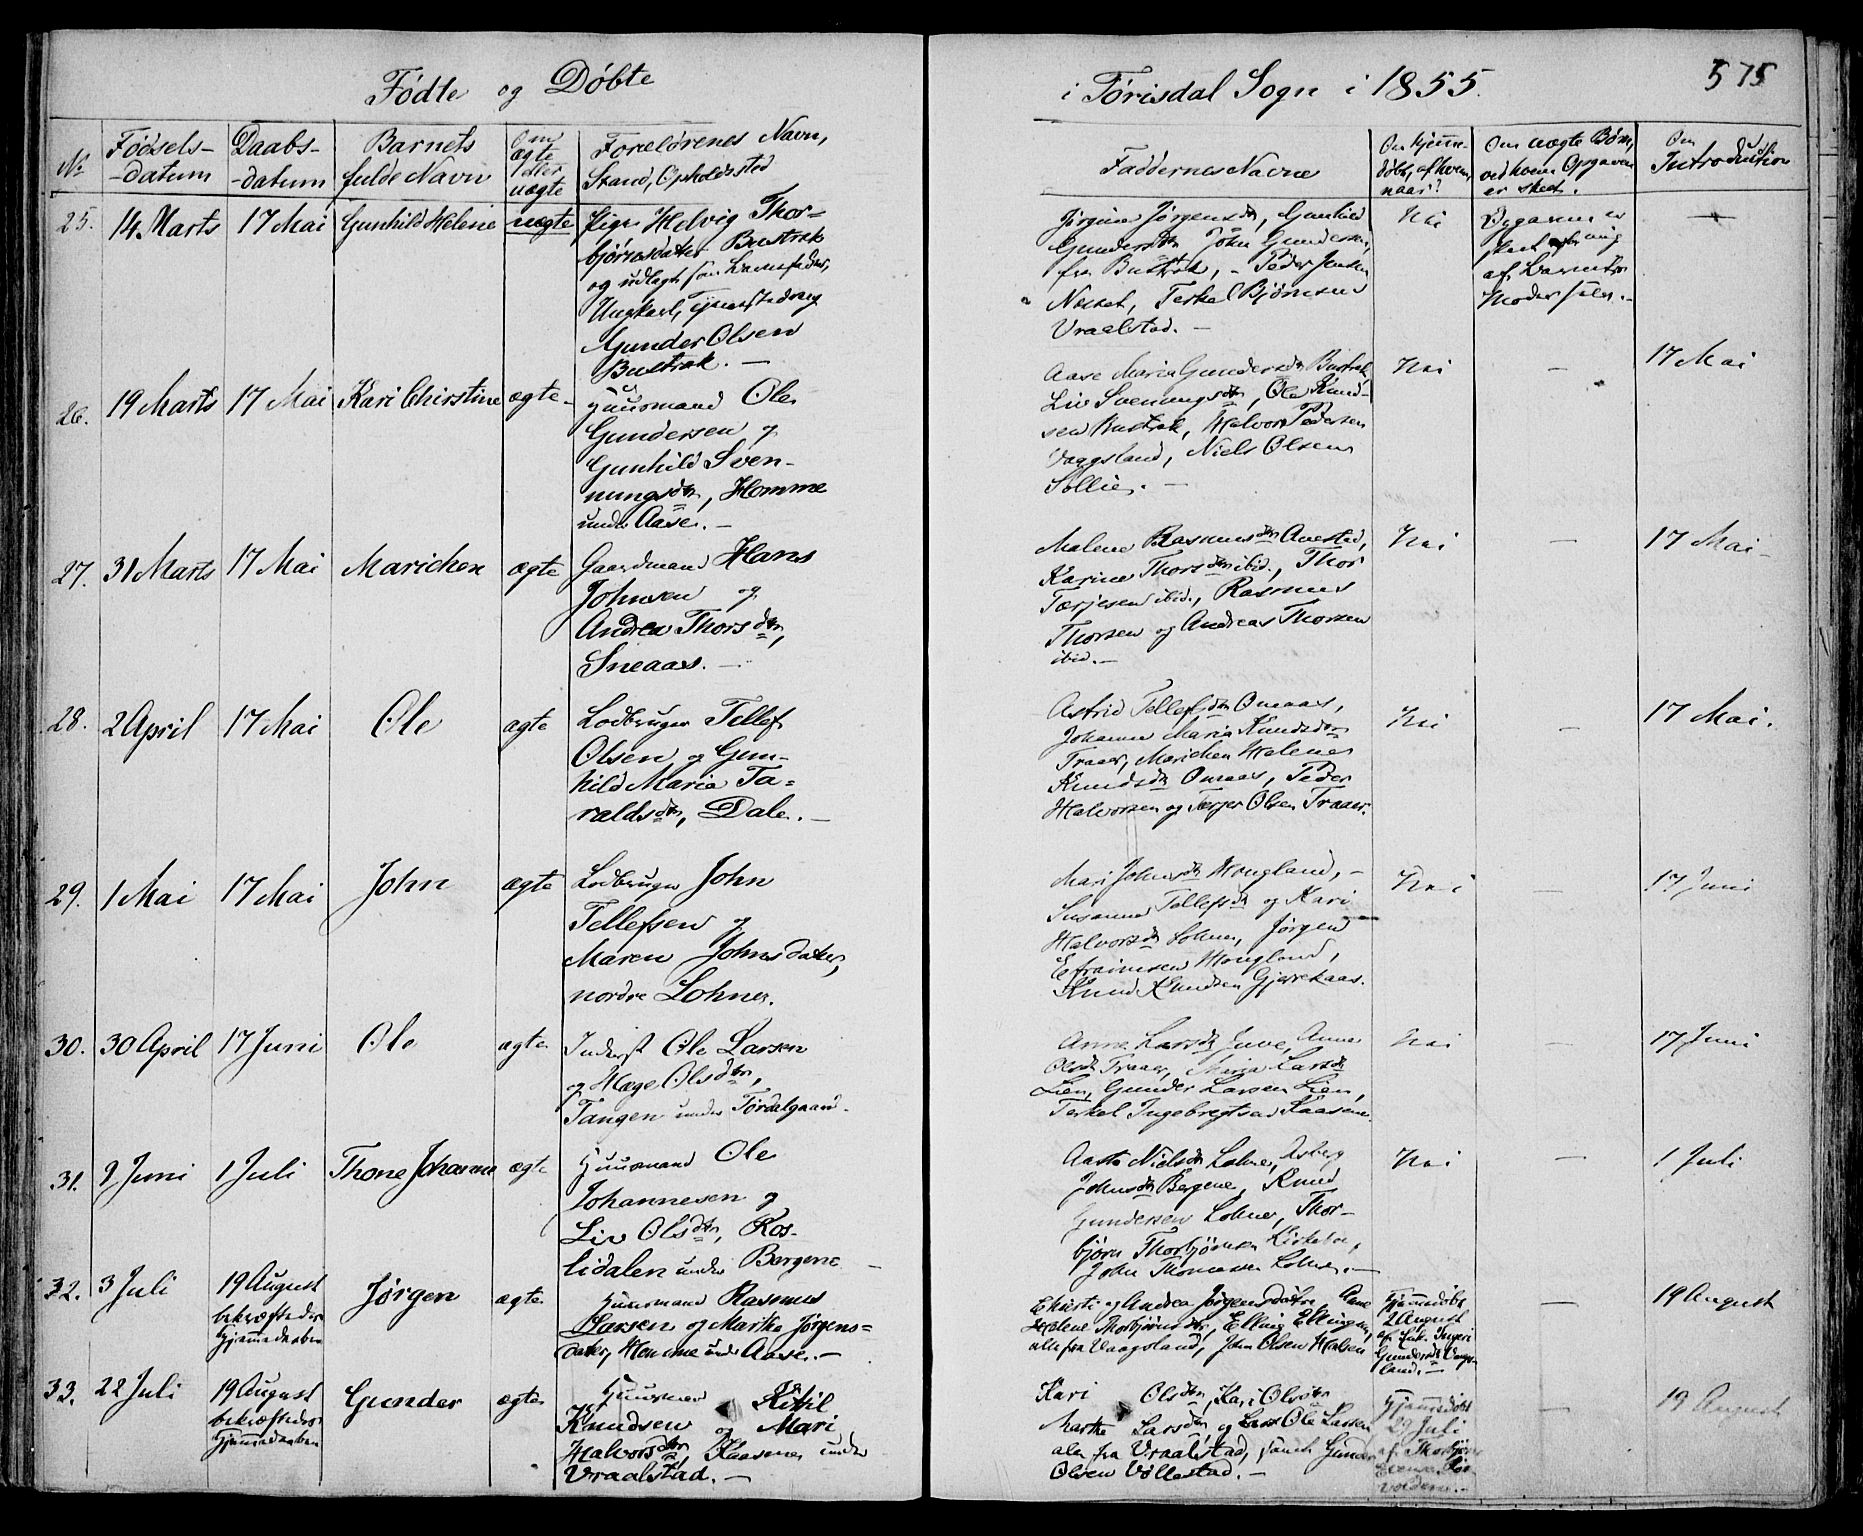 Fødte og Døbte
i Tørisdal Sogn i 1855.
575
No
Fødsels-
-datum
Daabs-
-datum
Barnets
fulde Navn
Om
ægte
eller
uægte
Forældrenes Navn,
Stand, Opholdssted
Faddernes Navne
Om hjemme-
døbt, af hvem,
naar?
Om uægte Børn,
ved hvem Opgaven
er skeet.
Om
Introduction
25.
14. Marts
17 Mai
Gunhild Helene
uægte
Pige Helvig Thor-
bjørnsdatter Bustrak
og udlagt som Barnefader,
Ungkarl,
Gunder Olsen
Bustrak. —
Jørgine Jørgensdtr, Gunhild
Gundersdtr John Gundersen,
fra Bustrak, - Peder Jensen
Neset, Terkel Bjørnsen
Vraalstad. —
Nei
Opgaven er
skeet
af Barnets
Moder selv. -
—
26.
19 Marts
17 Mai
Kari Chirstine
ægte
Huusmand Ole
Gundersen og
Gunhild Sven-
nungsdtr, Homme
under Aase. —
Aase Maria Gundersdtr Bustrak
Liv Svenungsdtr, Ole Knud-
sen Bustrak, Halvor Pedersen
Vaagsland, Niels Olsen
Sollie. —
Nei
—
17 Mai
27.
31 Marts
17 Mai
Marichen
ægte
Gaardmand Hans
Johnsen og
Andrea Thorsdtr,
Sneaas. —
Malene Rasmusdtr Avestad,
Karine Thorsdtr ibid., Thor
Tærjesen ibid., Rasmus
Thorsen og Andreas Thorsen
ibid. —
Nei
—
17 Mai
28.
2 April
17 Mai
Ole
ægte
Lodbruger Tellef
Olsen og Gun-
hild Maria Ta-
raldsdtr, Dale. —
Astrid Tellefsdtr Omaas,
Johanne Maria Knudsdtr
Traaer, Marichen Helene
Knudsdtr Omaas, Peder
Halvorsen og Tærjer Olsen Traaer.
Nei
—
17 Mai.
29.
1 Mai
17 Mai
John
ægte
Lodbruger John
Tellefsen og
Maren Johnsdatter,
nordre Lohne.
Mari Johnsdtr Hougland, -
Susanne Tellefsdtr og Kari
Halvorsdtr Lohne, Jørgen
Efraimsen Hougland,
Knud Knudsen Gjerrekaas.
Nei
—
17 Juni
30.
30 April
17 Juni
Ole
ægte
Inderst Ole Larsen
og Hæge Olsdtr,
Tangen under Tørdalgaard.
Anne Larsdtr Juve, Anne
Olsdtr Traaer, Maria Larsdtr
Lien, Gunder Larsen Lien,
Terkel Ingebregtsen Kaasene
Nei
—
17 Juni
31.
2 Juni
1 Juli
Thone Johanne
ægte
Huusmand Ole
Johannesen og
Liv Olsdtr, Ros-
lidalen under Bergene
Aaste Nielsdtr Lohne, Asberg
Johnsdtr Bergene, Knud
Gundersen Lohne, Thor-
bjørn Thorbjørnsen
John Thomassen Lohne. —
Nei
—
1 Juli
32.
3 Juli
19 August
bekræftedes
Hjemmedaaben
Jørgen
ægte
Huusmand Rasmus
Larsen og Marthe Jørgens-
datter, Homme under Aase. —
Chirsti og Andrea Jørgensdøtre Anne
Helene Thorbjørnsdtr, Elling Ellingsen,
alle fra Vaagsland, John Olsen Halsen
Hjemmedøbt
2 August
af Ingeri
Gundersdtr Vaags-
land. —
—
19 August
33.
22 Juli
19 August
bekræftedes
Hjemmedaaben
Gunder
ægte
Huusmand Kittil
Knudsen og Mari
Halvorsdtr, Kaasene under
Vraalstad. —
Kari Olsdtr, Kari Olsdtr
Marthe Larsdtr, og Ole Larsen
alle fra Vraalstad, samt Gunder
Olsen Vøllestad. —
Hjemmedøbt
29 Juli
af Thorbjørn
—
19 August